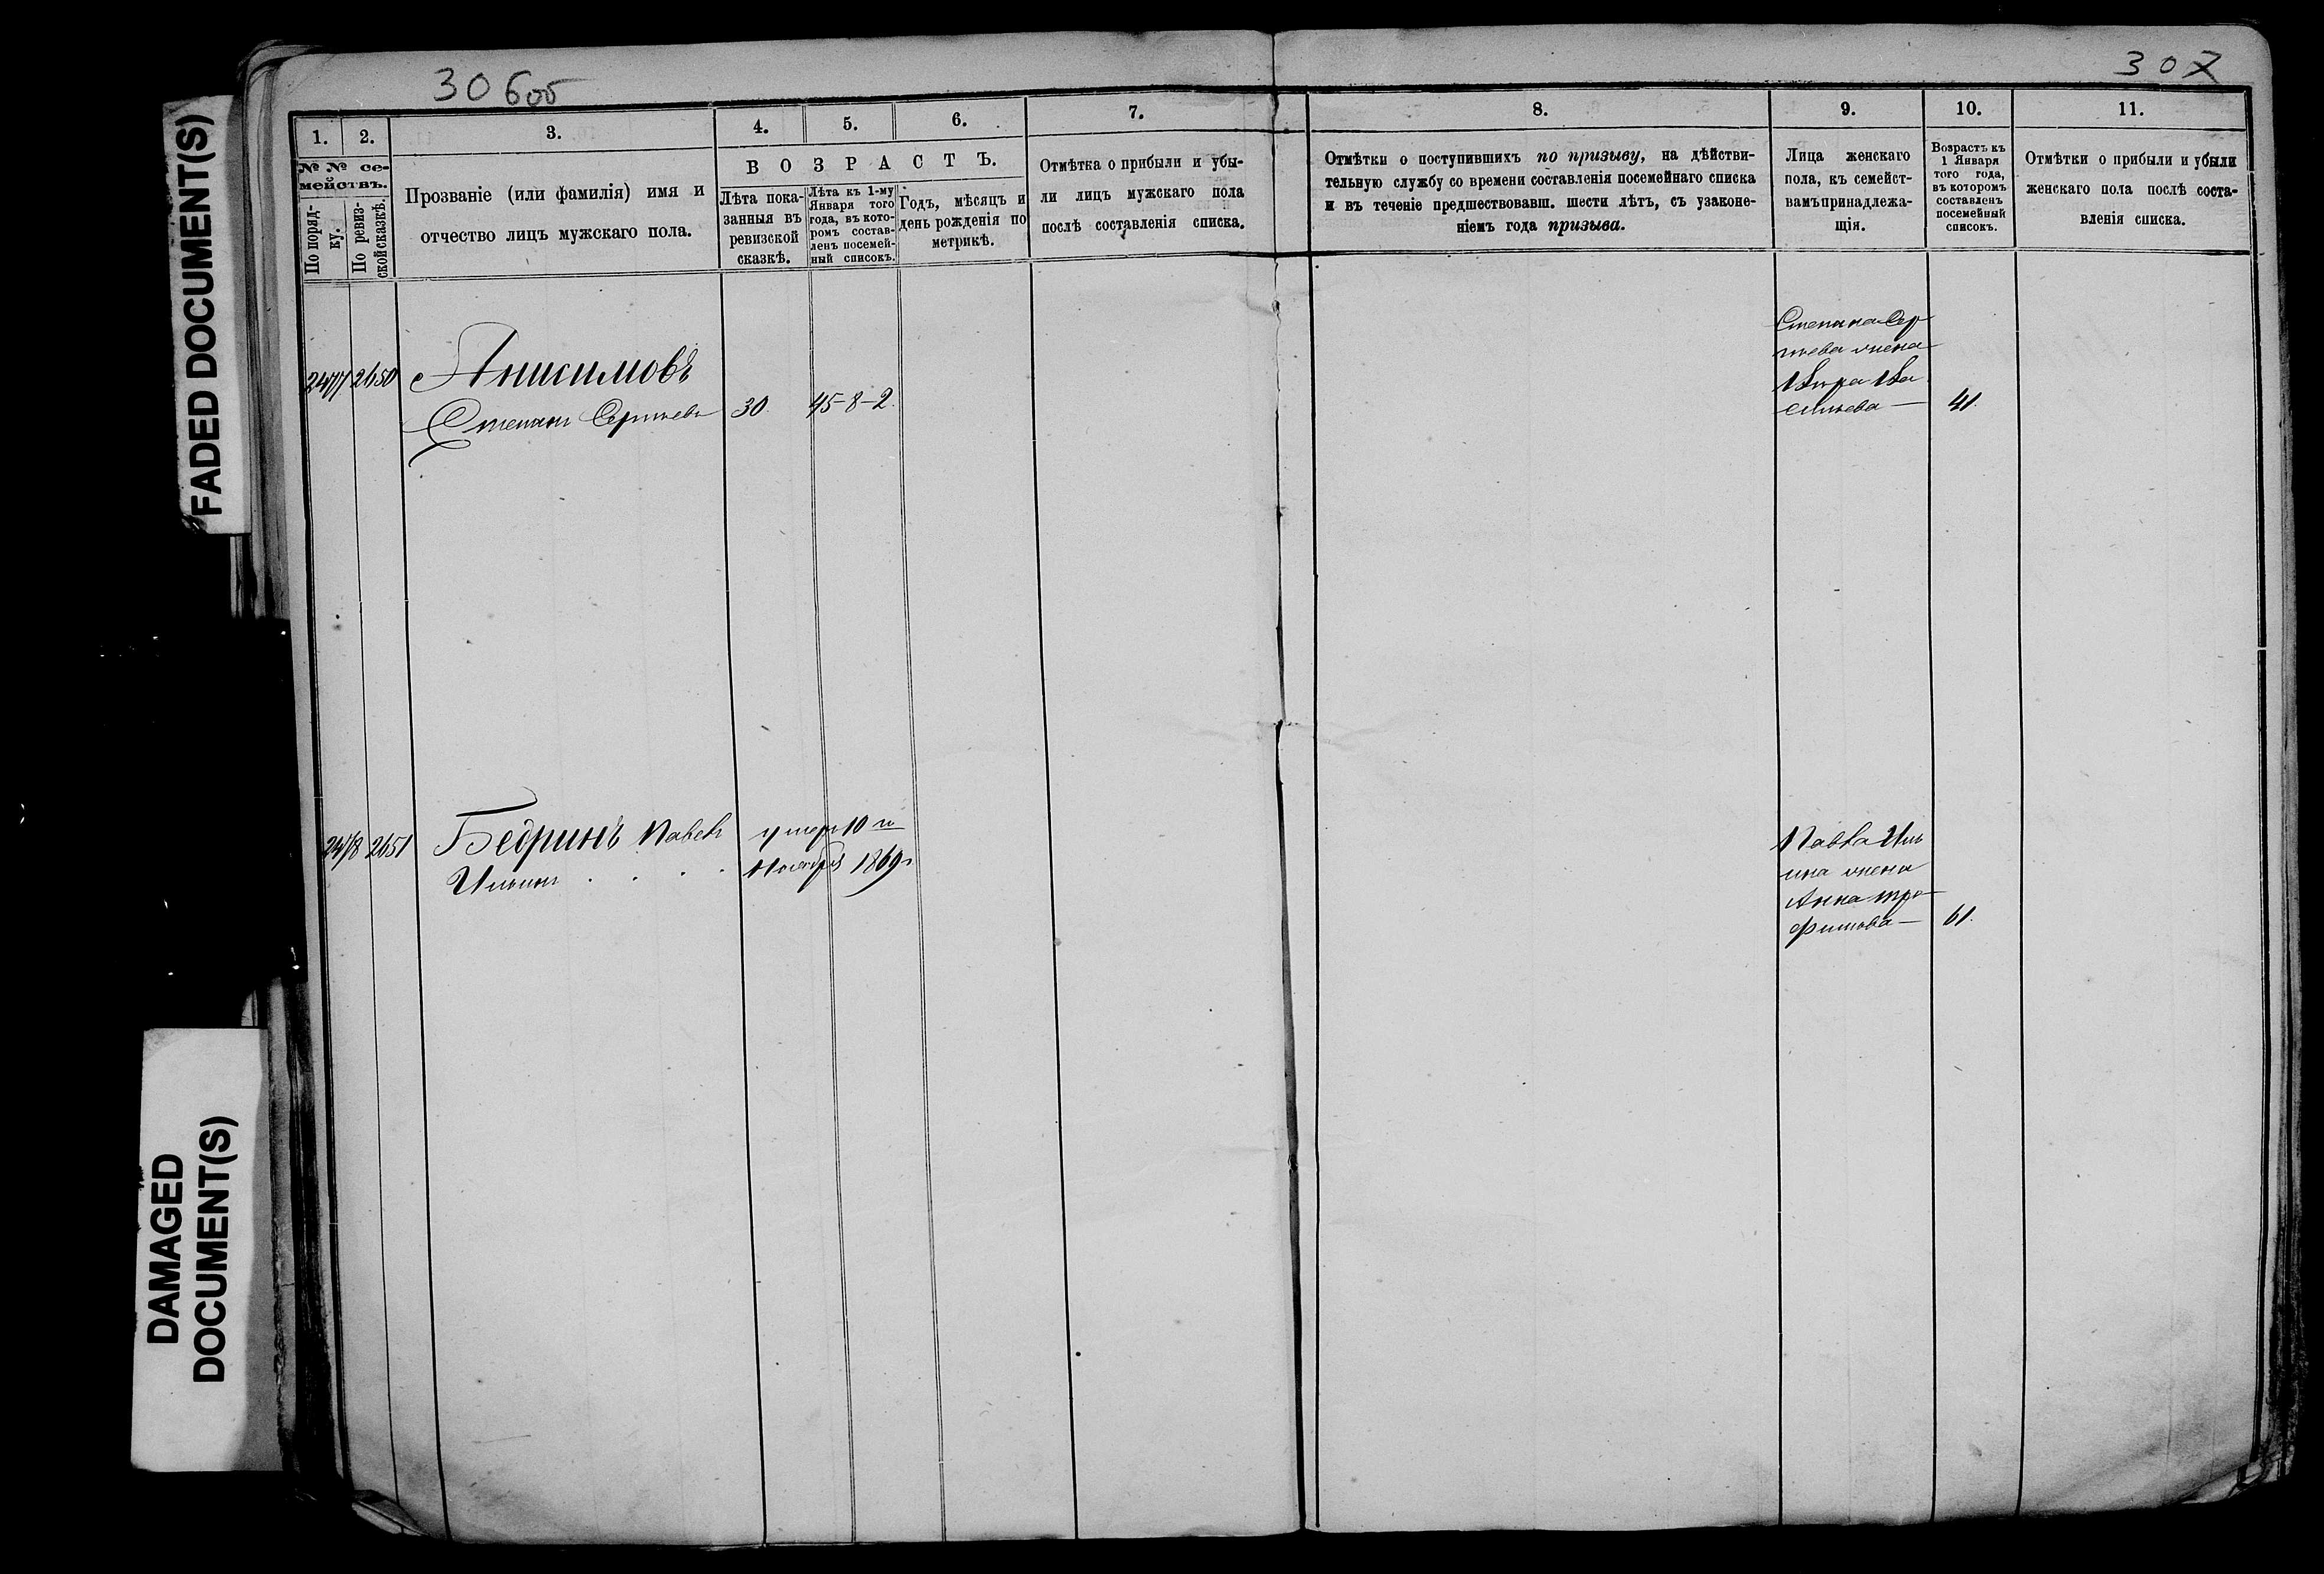 FADED DOCUMENT(S)
DAMAGED
DOCUMENT(S)
306об
307
1.
2.
3.
4.
5.
6.
7.
8.
9.
10.
11.
№ № се-
мействъ.
По поряд-
ку.
По ревиз-
ской сказкѣ.
Прозваніе (или фамилія) имя и
отчество лицъ мужскаго пола.
ВОЗРАСТЪ.
Лѣта пока-
занныя въ
ревизской
сказкѣ.
Лѣта къ 1-му
Января того
года, въ кото-
ромъ состав-
ленъ посемей-
ный списокъ.
Годъ, мѣсяцъ и
день рожденія по
метрикѣ.
Отмѣтка о прибыли и убы-
ли лицъ мужскаго пола
послѣ составленія списка.
Отмѣтки о поступившихъ по призыву, на дѣйстви-
тельную службу со времени составленія посемейнаго списка
и въ теченіе предшествовавш. шести лѣтъ, съ узаконе-
ніемъ года призыва.
Лица женскаго
пола, къ семейст-
вамъ принадлежа-
щія.
Возрастъ къ
1 Января
того года,
въ которомъ
составленъ
посемейный
списокъ.
Отмѣтки о прибыли и убыли
женскаго пола послѣ соста-
вленія списка.
2477 2650 Анисимовъ
Степанъ Сергѣевъ 30 45-8-2.
Степана Сер
гѣева жена
Вѣра Ва
сильева — 41.
2478 2651 Бедринъ Павелъ умеръ 10 го
Ильинъ . . . . Ноября 1869 г
Павла Иль
ина жена
Анна Тро
фимова — 61.